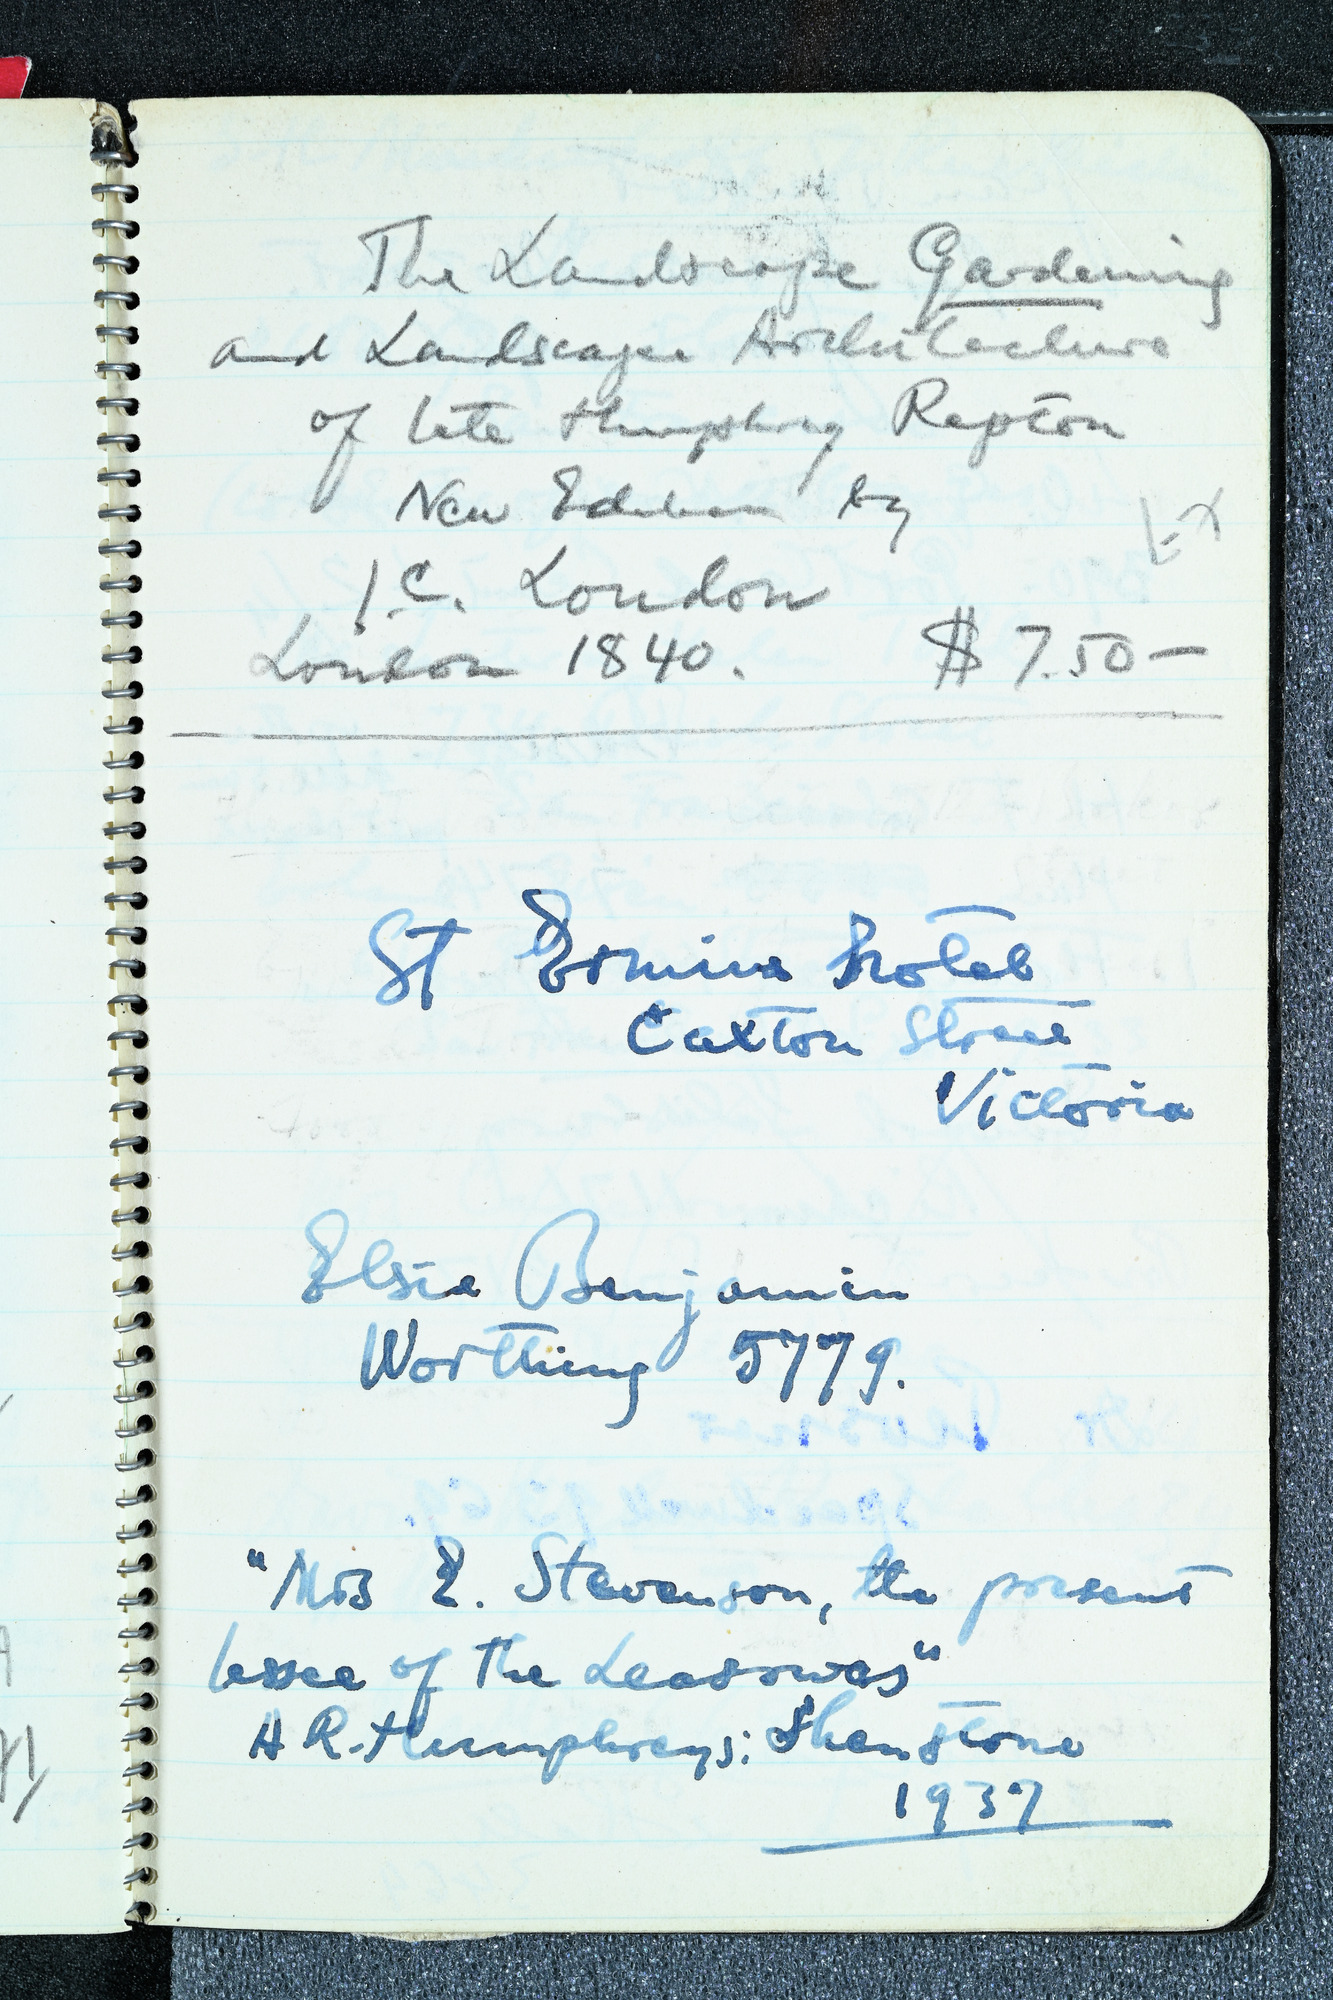 The Landscape Gardening
and Landscape Architecture
of late Humphrey Repton
New Edition by
J.C. Loudon
London 1840. $ 7.50—
St Ermins Hotel
Caxton Street
Victoria
Elsie Benjamin
Worthing 5779.
"Mrs E. Stevenson, the present
lessee of the Leasowes"
A R. Humphreys: Shenstone
1937